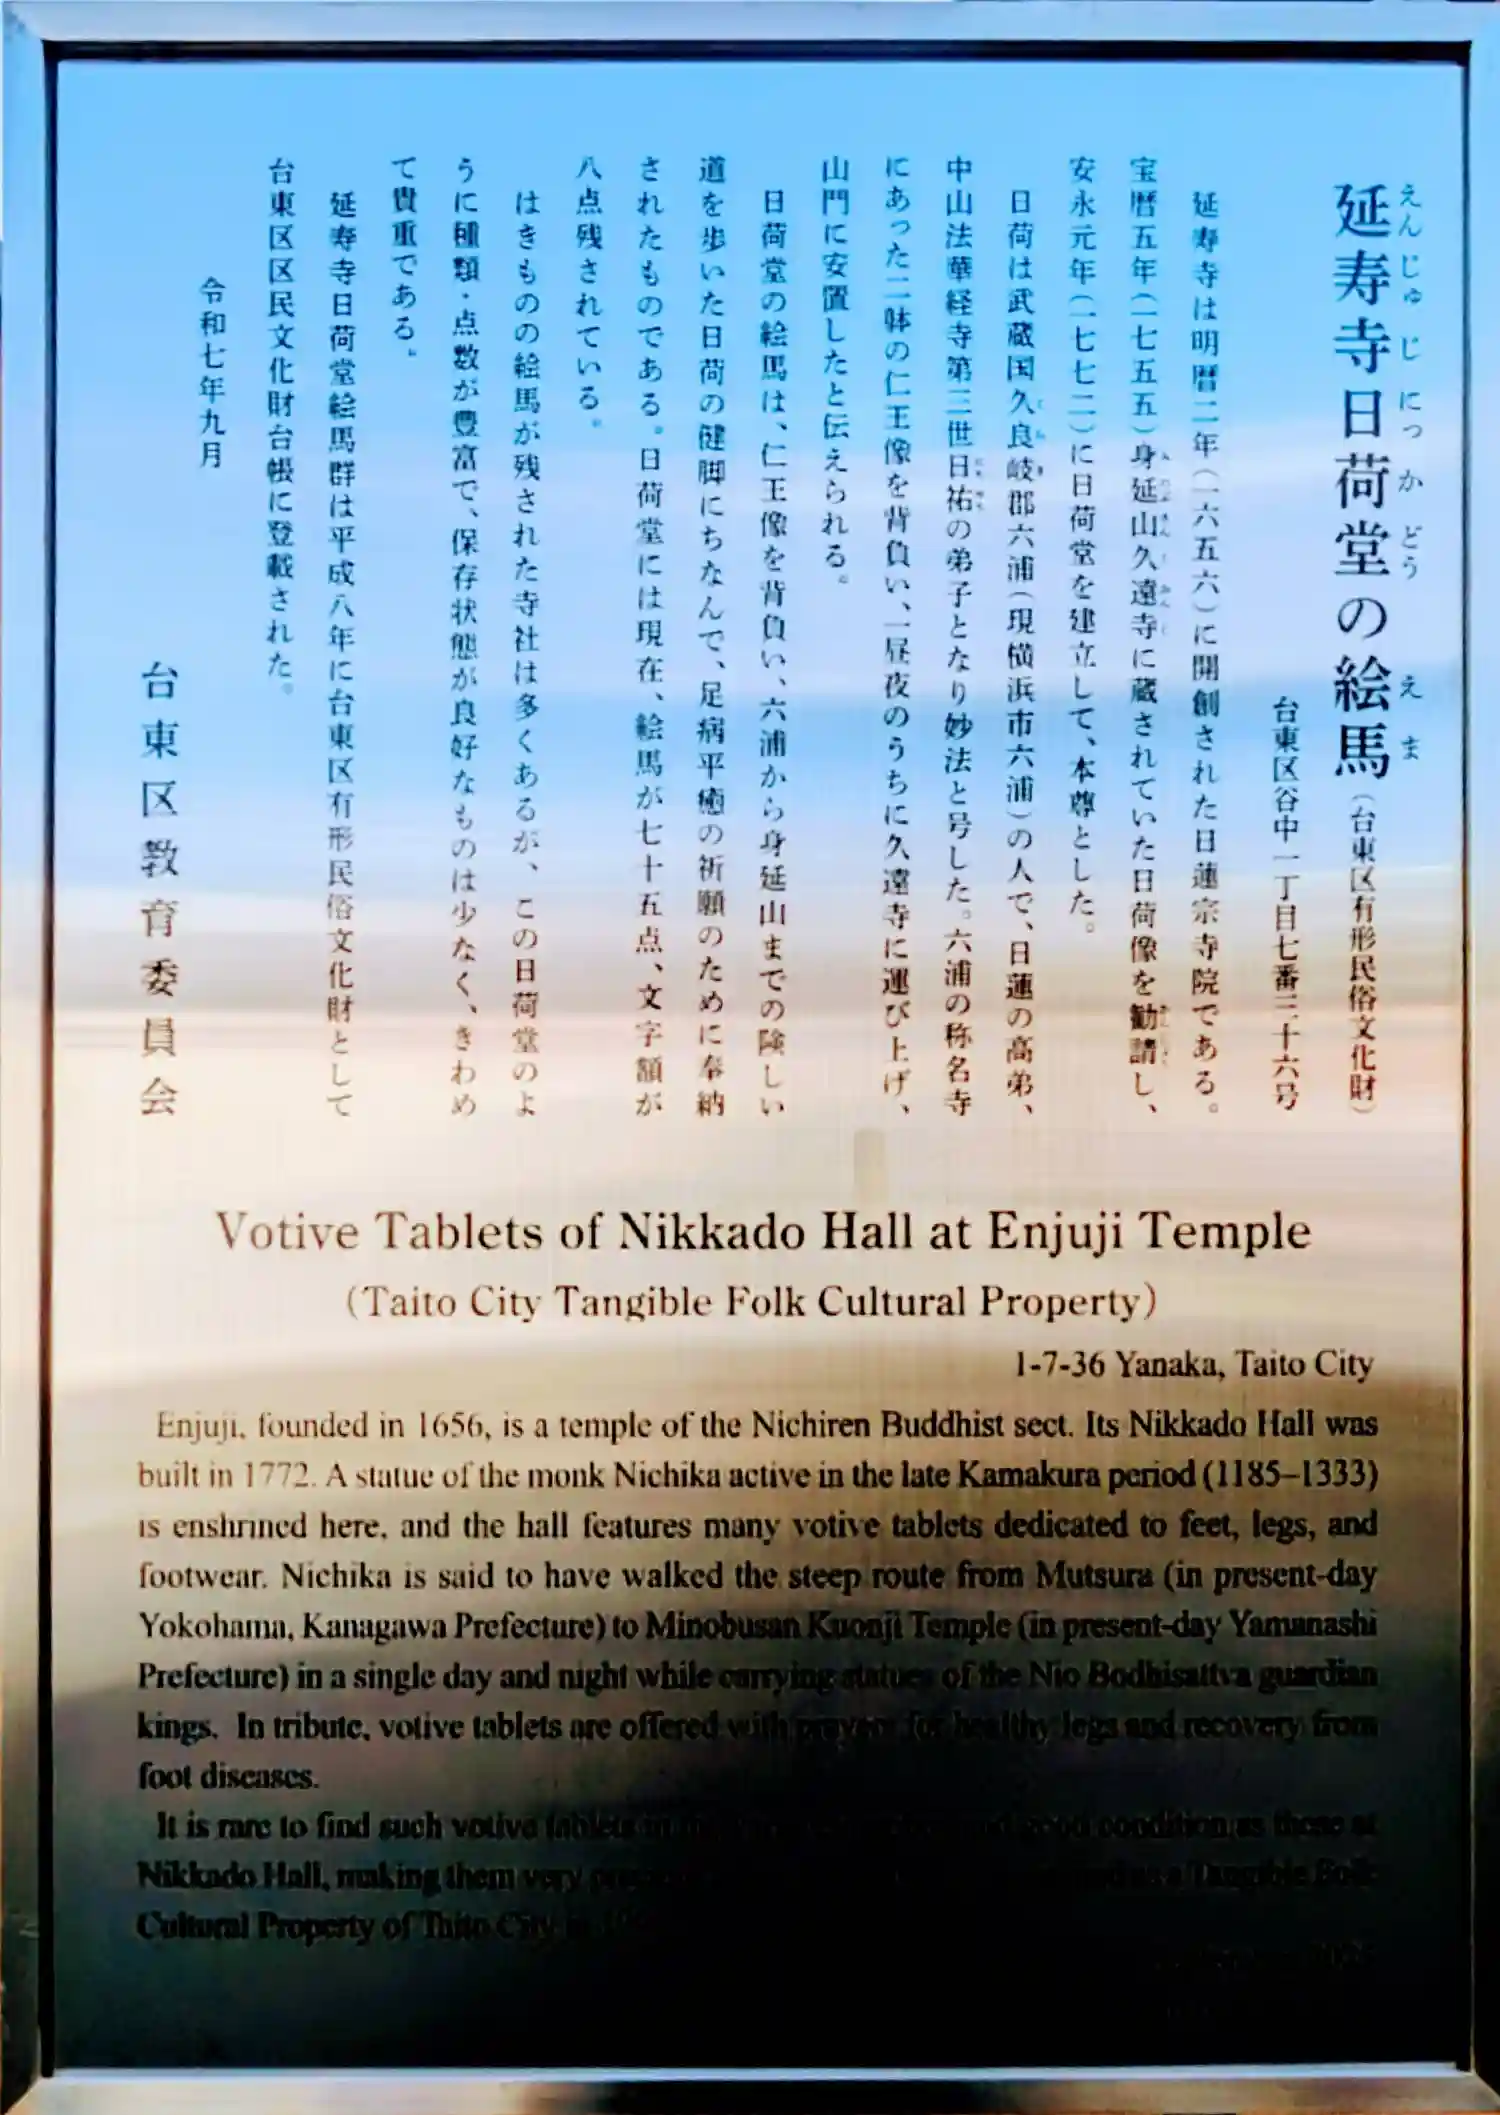 延寿寺日荷堂の絵馬(台東区有形民俗文化財)
えんじゅじにっかどう えま
台東区谷中一丁目七番三十六号
延寿寺は明暦二年(一六五六)に開創された日蓮宗寺院である。
宝暦五年(一七五五)身延山久遠寺に蔵されていた日荷像を勧請し、
安永元年(一七七二)に日荷堂を建立して、本尊とした。
日荷は武蔵国久良岐郡六浦(現横浜市六浦)の人で、日蓮の高弟、
中山法華経寺第三世日祐の弟子となり妙法と号した。六浦の称名寺
にあった二躰の仁王像を背負い、一昼夜のうちに久遠寺に運び上げ、
山門に安置したと伝えられる。
日荷堂の絵馬は、仁王像を背負い、六浦から身延山までの険しい
道を歩いた日荷の健脚にちなんで、足病平癒の祈願のために奉納
されたものである。日荷堂には現在、絵馬が七十五点、文字額が
八点残されている。
はきものの絵馬が残された寺社は多くあるが、この日荷堂のよ
うに種類・点数が豊富で、保存状態が良好なものは少なく、きわめ
て貴重である。
延寿寺日荷堂絵馬群は平成八年に台東区有形民俗文化財として
台東区区民文化財台帳に登載された。
令和七年九月
台東区教育委員会
Votive Tablets of Nikkado Hall at Enjuji Temple
(Taito City Tangible Folk Cultural Property)
1-7-36 Yanaka, Taito City
Enjuji, founded in 1656, is a temple of the Nichiren Buddhist sect. Its Nikkado Hall was
built in 1772. A statue of the monk Nichika active in the late Kamakura period (1185–1333)
is enshrined here, and the hall features many votive tablets dedicated to feet, legs, and
footwear. Nichika is said to have walked the steep route from Mutsura (in present-day
Yokohama, Kanagawa Prefecture) to Minobusan Kuonji Temple (in present-day Yamanashi
Prefecture) in a single day and night while carrying statues of the Nio Bodhisattva guardian
kings. In tribute, votive tablets are offered with prayers for healthy legs and recovery from
foot diseases.
It is rare to find such votive tablets in good condition as those at
Nikkado Hall, making them very a Tangible Folk
Cultural Property of Taito City in